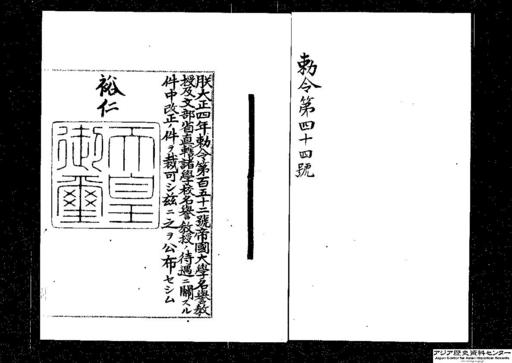 勅令第四十四號
朕大正四年勅令第百五十二號帝國大學名譽教
授及文部省直轄諸學校名譽教授ノ待遇ニ關スル
件中改正ノ件ヲ裁可シ茲ニ之ヲ公布セシム
裕仁
天皇
御璽
アジア歴史資料センター
Japan Center for Asian Historical Records